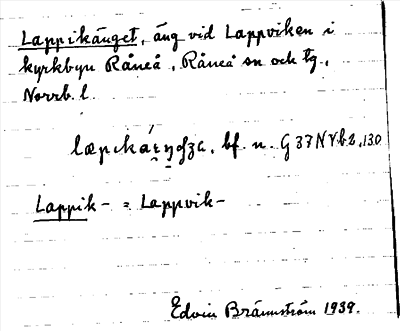 Lappikänget, äng vid Lappviken i
kyrkbyn Råneå, Råneå sn och tg.,
Norrb. l.
bf. n. G 37 N Y b 2, 130
Lappik- = Lappvik-
Edvin Brännström 1939.